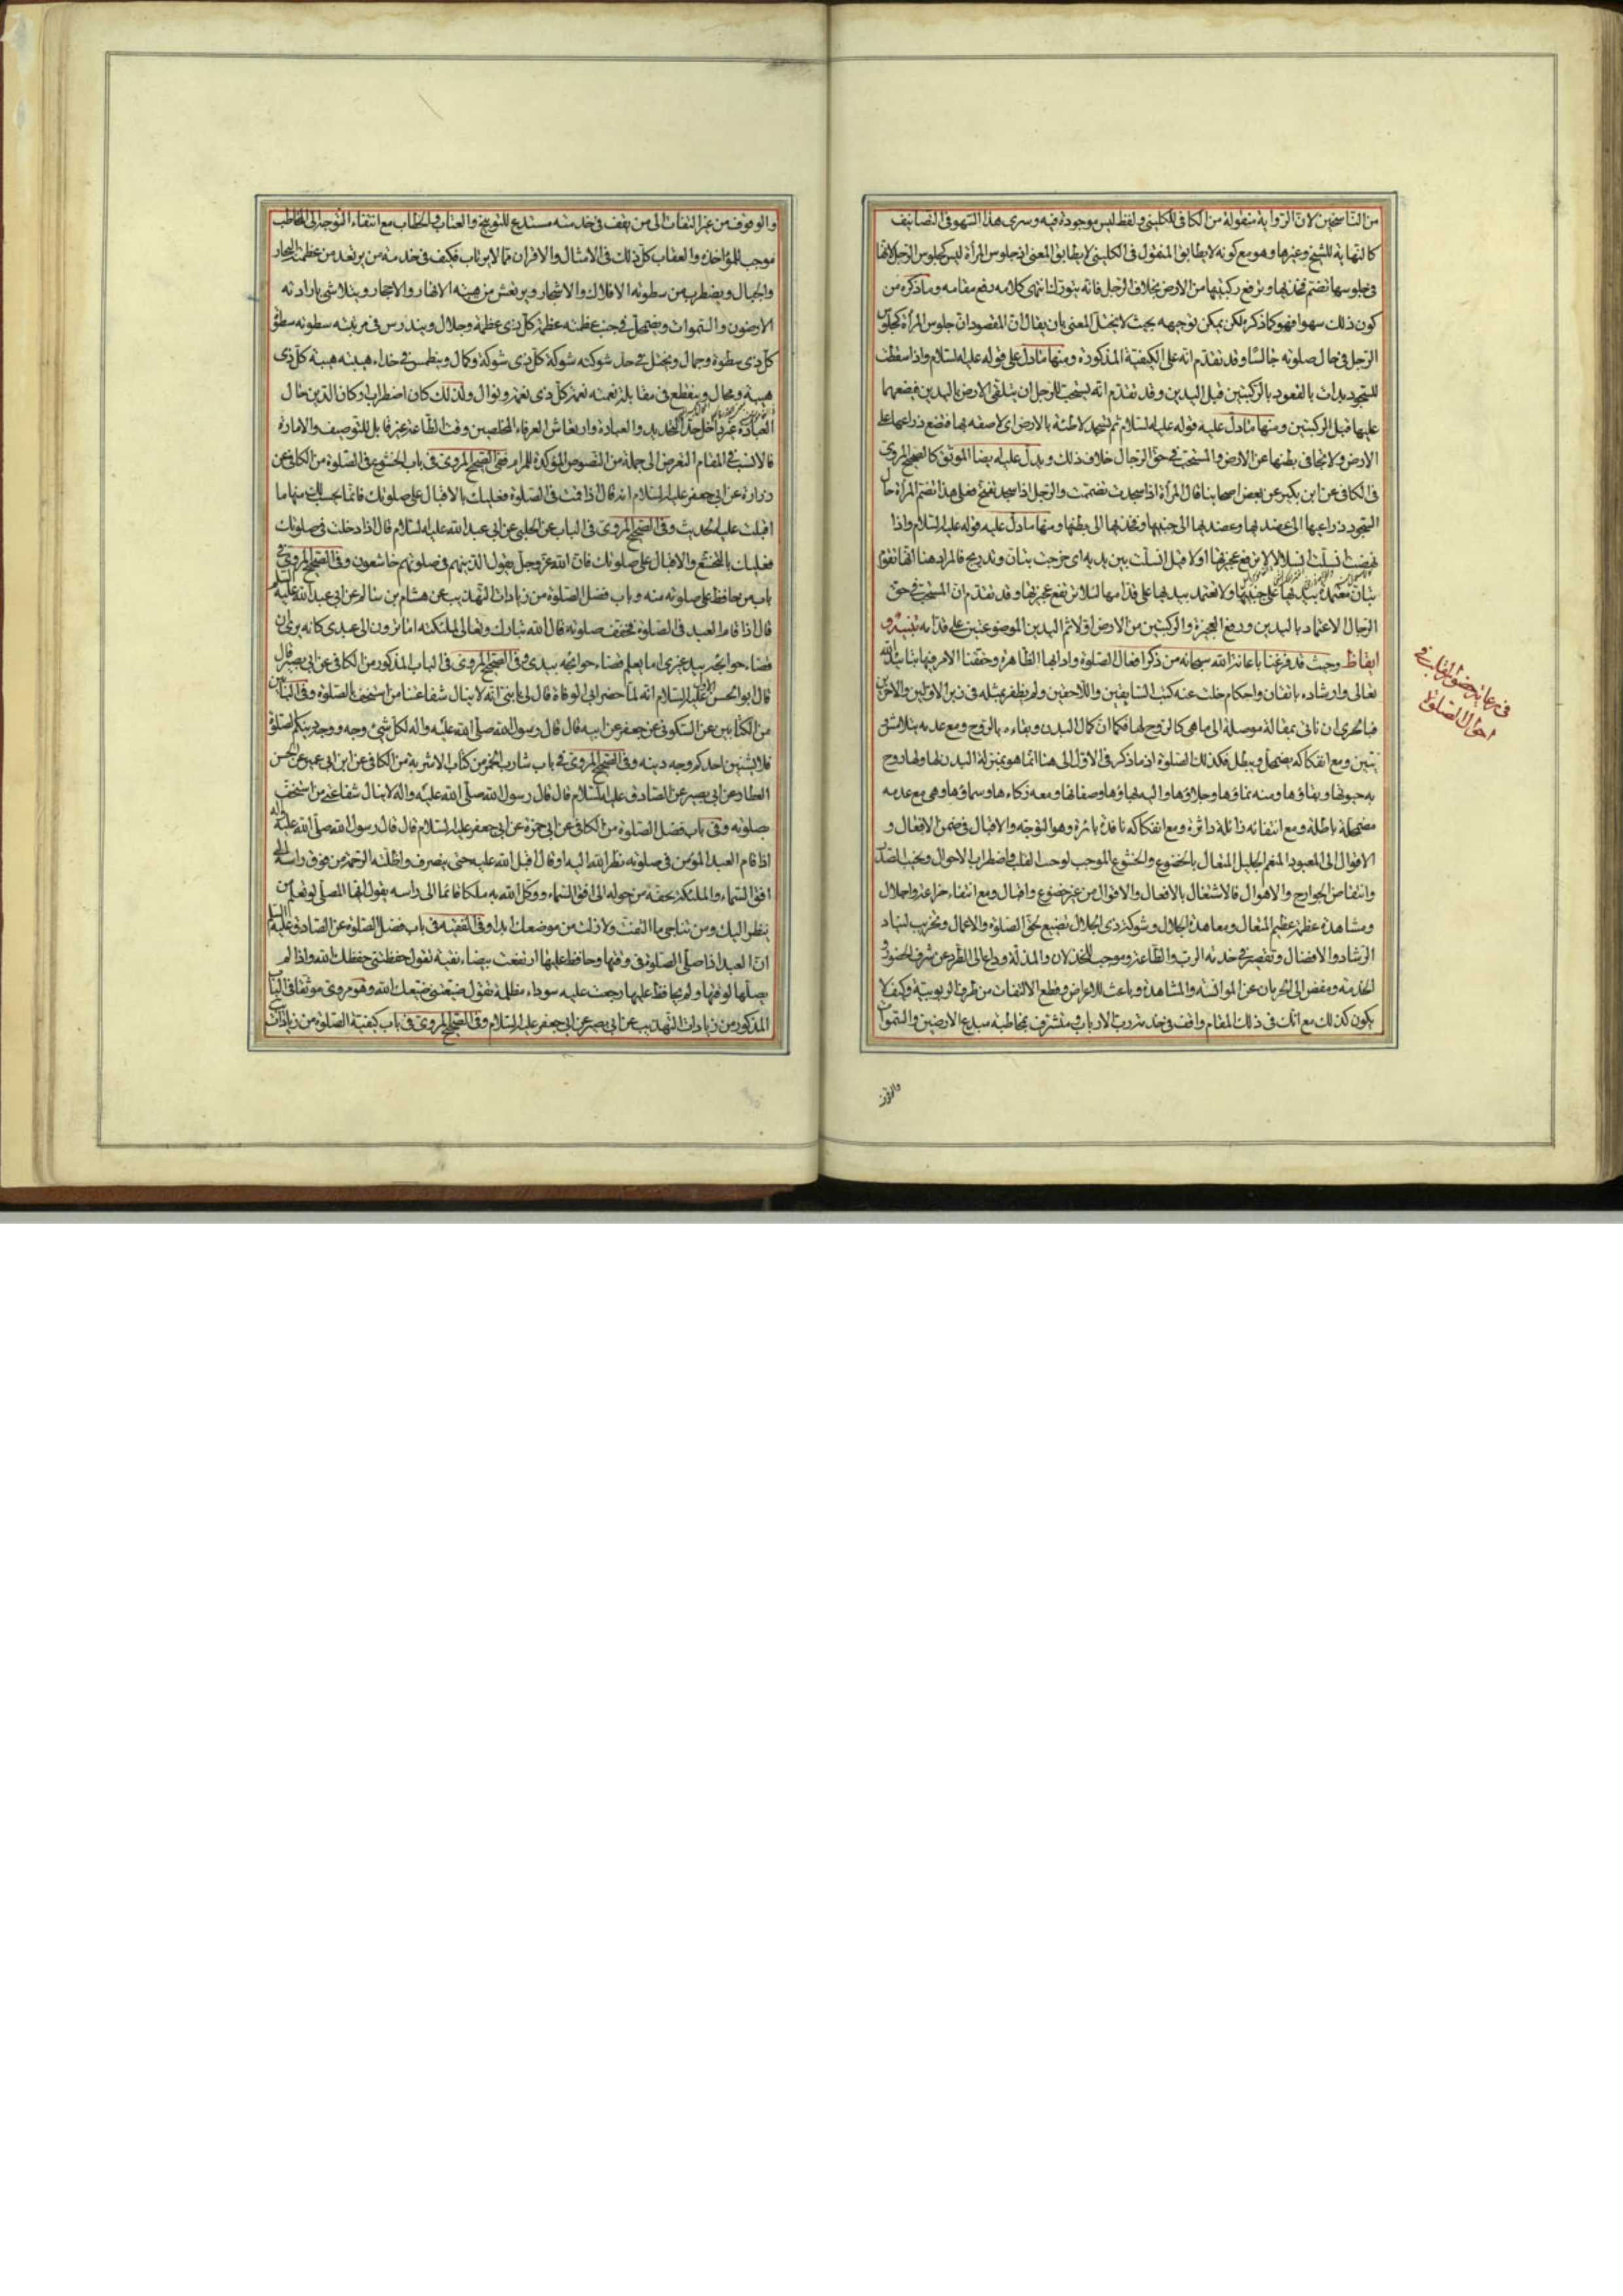 من الناسخين لان الرواية منقولة من الكافي للكليني ولفظ ليس موجودة فيه وسرى هذا السهو في التصانيف
كالنهاية للشيخ وغيرها وهو مع كونه لا يطابق المنقول في الكليني لا يطابق المعنى اذ جلوس المرأة ليس كجلوس الرجل لانها
في جلوسها تضم فخذيها وترفع ركبتيها من الارض بخلاف الرجل فانه يتورك انتهى كلامه رفع مقامه وما ذكره من
كون ذلك سهوا فهو كما ذكره لكن يمكن توجيهه بحيث لا يختل المعنى بان يقال ان المقصود ان جلوس المرأة كجلوس
الرجل في حال صلوته جالسا وقد تقدم انه على الكيفية المذكورة ومنها ما دل على قوله عليه السلام واذا سقطت
للسجود بدات بالقعود بالركبتين قبل اليدين وقد تقدم انه يستحب للرجل ان يتلقى الارض باليدين فيضعهما
عليها قبل الركبتين ومنها ما دل عليه قوله عليه السلام ثم تسجد لاطئة بالارض اي لاصقة بها فتضع ذراعيها على
الارض ولا تجافي بطنها عن الارض والمستحب في حق الرجال خلاف ذلك ويدل عليه ايضا الموثق كالصحيح المروي
في الكافي عن ابن بكير عن بعض اصحابنا قال المرأة اذا سجدت تضممت والرجل اذا سجد تفتح فعلى هذا تضم المرأة حال
السجود ذراعيها الى عضديها وعضديها الى جنبيها وفخذيها الى بطنها ومنها ما دل عليه قوله عليه السلام واذا
نهضت انسلت انسلالا لا ترفع عجيزتها اولا قيل انسلت بين يديه اي خرجت بتان وتدريج فالمراد هنا انها تقوم
بتان معتمدة بيديها على جنبيها ولا تعتمد بيديها على قدامها لئلا ترتفع عجيزتها وقد تقدم ان المستحب في حق
الرجال الاعتماد باليدين ورفع العجيزة والركبتين من الارض اولا ثم اليدين الموضوعتين على قدامه تنبيه و
ايقاظ وحيث قد فرغنا باعانة الله سبحانه من ذكر افعال الصلوة وادابها الظاهرة وحققنا الامر فيها بتاييد الله
تعالى وارشاده باتقان واحكام خلت عنه كتب السابقين واللاحقين ولم يظفر بمثله في زبر الاولين والاخرين
فبالحري ان ناتي بمقالة موصلة الى ما هي كالروح لها فكما ان كمال البدن وبقاءه بالروح ومع عدمه يتلاشى
مضمحلة باطلة ومع انتفائه زائلة داثرة ومع انفكاكه نافدة بائرة وهو التوجه والاقبال في ضمن الافعال و
الاقوال الى المعبود المنعم الجليل المتعال بالخضوع والخشوع الموجب لوحت القلب واضطراب الاحوال
ومشاهدة عظمة عظيم المتعال ومعاهدة الجلال وشوكة ذي الجلال تضييع لحق الصلوة والاعمال وتخريب لبنياد
الرشاد والافضال وتقصير في خدمة الرب والطاعة وموجب للخذلان والمذلة وداع الى الطرد عن شرف الحضور و
الخدمة ومفض الى الحرمان عن الموانسة والمشاهدة وباعث للاعراض وقطع الالتفات من طرف الربوبية وكيف لا
يكون كذلك مع انك في ذلك المقام واقف في خدمة رب الارباب ومتشرف بمخاطبة مبدع الارضين والسموات
والوقوف
في رعاية حضور القلب في
احوال الصلوة
والوقوف من غير التفات الى من يقف في خدمته مستدع للتوبيخ والعتاب والخطاب مع انتفاء التوجه الى المخاطب
موجب للمؤاخذة والعقاب كل ذلك في الامثال والاقران مما لا يرتاب فكيف في خدمة من يرتعد من عظمته البحار
والجبال ويضطرب من سطوته الافلاك والاشجار ويرتعش من هيبته الانهار والاحجار ويتلاشى بارادته
الارضون والسموات ويضمحل في جنب عظمته عظمة كل ذي عظمة وجلال ويندرس في مرتبته سطوته سطوة
كل ذي سطوة وجمال ويختل في حذاء شوكته شوكة كل ذي شوكة وكمال وينطمس في حذاء هيبته هيبة كل ذي
هيبة ومحال وينقطع في مقابلة نعمته نعمة كل ذي نعمة ونوال ولذلك كان اضطراب اركان الدين حال
العبادة غير داخل تحت التحديد والعبارة وارتعاش العرفاء المخلصين وقت الطاعة غير قابل للتوصيف والامارة
فالانسب في المقام التعرض الى جملة من النصوص المؤكدة للمرام ففي الصحيح المروي في باب الخشوع في الصلوة من الكافي عن
زرارة عن ابي جعفر عليه السلام انه قال اذا قمت في الصلوة فعليك بالاقبال على صلوتك فانما يحسب لك منها ما
اقبلت عليه الحديث وفي الصحيح المروي في الباب عن الحلبي عن ابي عبد الله عليه السلام قال اذا دخلت في صلوتك
فعليك بالتخشع والاقبال على صلوتك فان الله عز وجل يقول الذين هم في صلوتهم خاشعون وفي الصحيح المروي في
باب من حافظ على صلوته منه وباب فضل الصلوة من زيادات التهذيب عن هشام بن سالم عن ابي عبد الله عليه السلام
قال اذا قام العبد في الصلوة فخفف صلوته قال الله تبارك وتعالى لملئكته اما ترون الى عبدي كانه يرى ان
قضاء حوائجه بيد غيري اما يعلم ان قضاء حوائجه بيدي وفي الصحيح المروي في الباب المذكور من الكافي عن ابي بصير قال
قال ابو الحسن الاول عليه السلام انه لما حضر ابي الوفاة قال لي يا بني انه لا ينال شفاعتنا من استخف بالصلوة وفي البابين
من الكتابين عن السكوني عن جعفر عن ابيه قال قال رسول الله صلى الله عليه واله لكل شيء وجه ووجه دينكم الصلوة
فلا يشينن احدكم وجه دينه وفي الصحيح المروي في باب شارب الخمر من كتاب الاشربة من الكافي عن ابن ابي عمير عن ابي الحسن
العطار عن ابي بصير عن الصادق عليه السلام قال قال رسول الله صلى الله عليه واله لا ينال شفاعتي من استخف
بصلوته وفي باب فضل الصلوة من الكافي عن ابي حمزة عن ابي جعفر عليه السلام قال قال رسول الله صلى الله عليه واله
اذا قام العبد المؤمن في صلوته نظر الله اليه او قال اقبل الله عليه حتى ينصرف واظلته الرحمة من فوق راسه الى
افق السماء والملئكة تحفه من حوله الى افق السماء ووكل الله به ملكا قائما الى راسه يقول ايها المصلي لو تعلم من
ينظر اليك ومن تناجي ما التفت ولا زلت من موضعك ابدا وفي الفقيه في باب فضل الصلوة عن الصادق عليه السلام
ان العبد اذا صلى الصلوة في وقتها وحافظ عليها ارتفعت بيضاء نقية تقول حفظتني حفظك الله واذا لم
يصلها لوقتها ولم يحافظ عليها رجعت عليه سوداء مظلمة تقول ضيعتني ضيعك الله وهو مروي موثقا في الباب
المذكور من زيادات التهذيب عن ابي بصير عن ابي جعفر عليه السلام وفي الصحيح المروي في باب كيفية الصلوة من زيادات